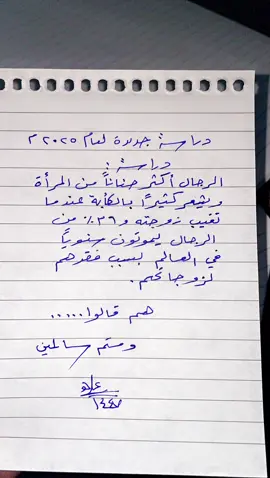 دراسة جديدة لعام ٢٠٢٥ م
دراسة :
الرجال أكثر حناناً من المرأة
ويشعر كثيرًا بالكآبة عندما
تغيب زوجته و ٢٦٪ من
الرجال يموتون سنوياً
في العالم بسبب فقدهم
لزوجاتهم.
هم قالوا.....
ودمتم سالمين